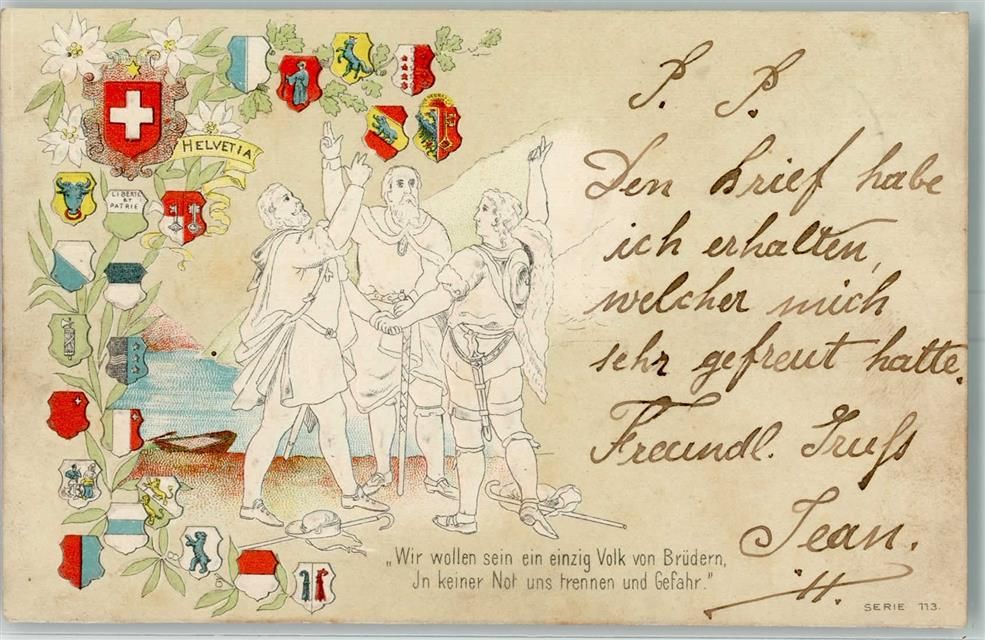 P. P.
Den Brief habe
ich erhalten,
welcher mich
sehr gefreut hatte.
Freundl. Gruß
Jean.
H.
HELVETIA
LIBERTÉ
ET
PATRIE
„Wir wollen sein ein einzig Volk von Brüdern,
In keiner Not uns trennen und Gefahr.”
SERIE 113.